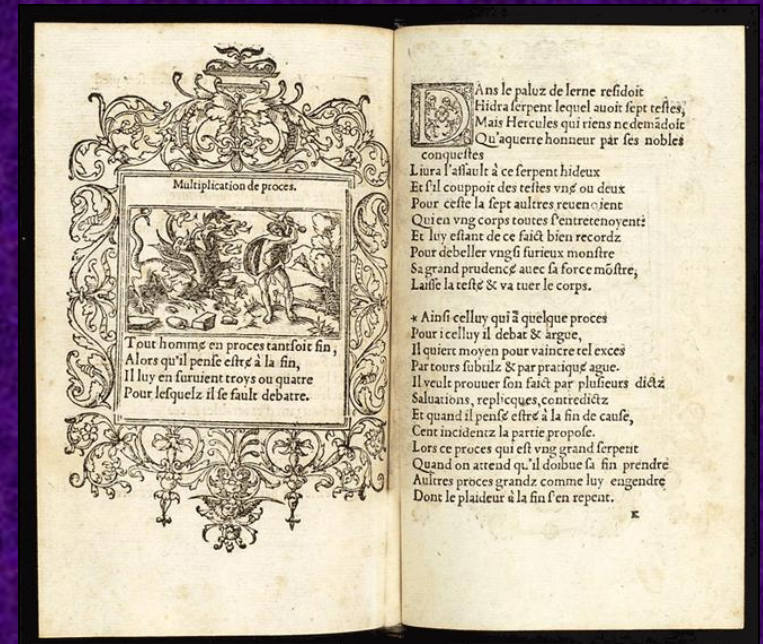 Multiplication de proces.
Tout hommɇ en proces tantſoit fin,
Alors qu'il penſe eſtrɇ à la fin,
Il luy en ſuruient troys ou quatre
Pour leſquelz il ſe fault debatre.
DAns le paluz de lerne reſidoit
Hidra ſerpent lequel auoit ſept teſtes,
Mais Hercules qui riens ne demādoit
Qu'aquerre honneur par ſes nobles
conqueſtes
Liura l'aſſault à ce ſerpent hideux
Et ſ'il couppoit des teſtes vnɇ ou deux
Pour ceſte la ſept aultres reuenoient
Qui en vng corps toutes ſ'entretenoyent:
Et luy eſtant de ce faict bien recordz
Pour debeller vng ſi furieux monſtre
Sa grand prudencɇ auec ſa force mōſtre,
Laiſſe la teſtɇ & va tuer le corps.
* Ainſi celluy qui ā quelque proces
Pour icelluy il debat & argue,
Il quiert moyen pour vaincre tel exces
Par tours ſubtilz & par pratiquɇ ague.
Il veult prouuer ſon faict par pluſieurs dictz
Saluations, replicques, contredictz
Et quand il penſɇ eſtrɇ à la fin de cauſe,
Cent incidentz la partie propoſe.
Lors ce proces qui eſt vng grand ſerpent
Quand on attend qu'il doibue ſa fin prendre
Aultres proces grandz comme luy engendrɇ
Dont le plaideur à la fin ſ'en repent.
K